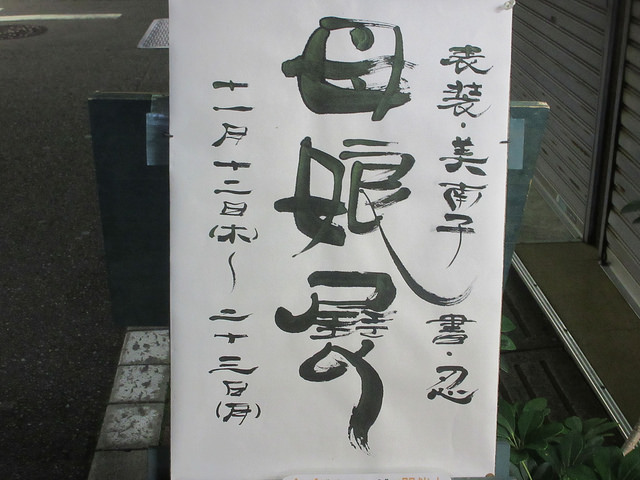 表装・美南子
書・忍
母娘展
十一月十二日(木)〜二十三日(月)